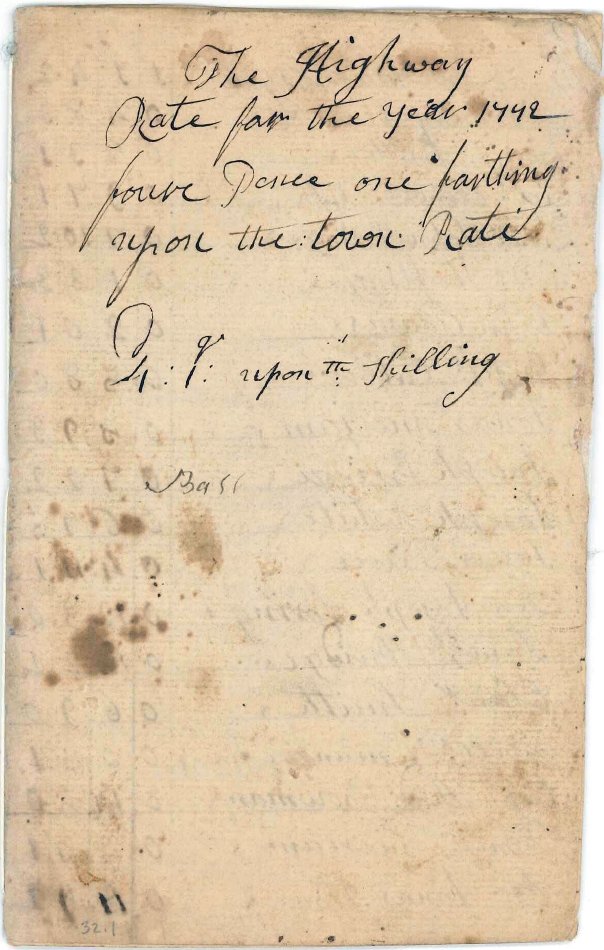 The Highway
Rate for the Year 1772
foure Pence one farthing
upon the town Rate
D q
4 : 1 : upon th Shilling
Bass
32.1